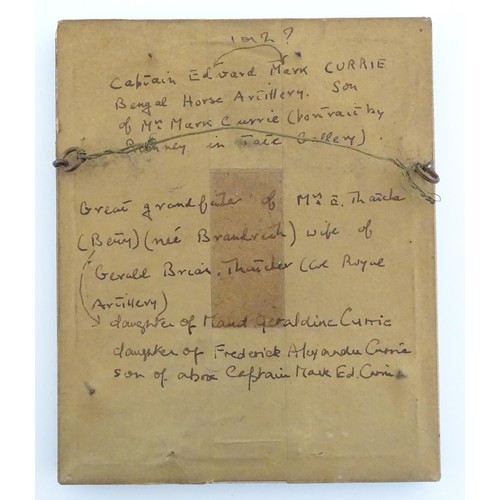 1827?
Captain Edward Mark CURRIE
Bengal Horse Artillery. Son
of Mrs Mark Currie (portrait by
Romney in Tate Gallery).
Great grandfather of Mrs E. Thatcher
(Betty) (née Brandreth) wife of
Gerald Brian Thatcher (Col Royal
Artillery)
daughter of Maud Geraldine Currie
daughter of Frederick Alexander Currie
son of above Captain Mark Ed. Currie